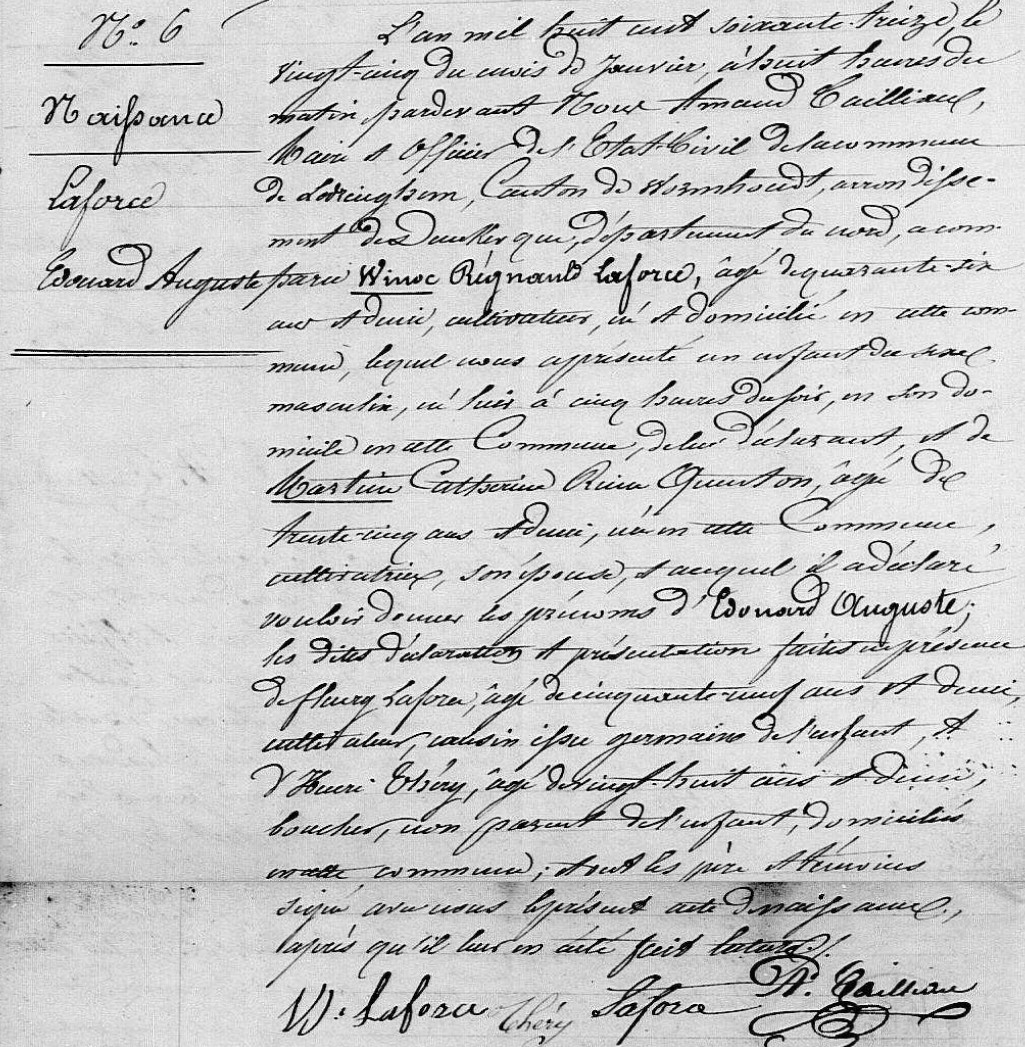 N.° 6
Naissance
Laforce
Edouard Auguste
L'an mil huit cent soixante-treize, le
vingt-cinq du mois de Janvier, à huit heures du
matin, pardevant Nous Amand Cailliau,
Maire et Officier de l'Etat-Civil de la commune
de Ledringhem, Canton de Wormhoudt, arrondisse-
ment de Dunkerque, département du nord, a com-
paru Winoc Régnault Laforce, âgé de quarante-six
ans et demi, cultivateur, né et domicilié en cette com-
mune, lequel nous a présenté un enfant du sexe
masculin, né hier à cinq heures du soir, en son do-
micile en cette Commune, de lui déclarant, et de
Martine Catherine Quenton, âgée de
trente-cinq ans et demi, née en cette Commune,
cultivatrice, son épouse, et auquel il a déclaré
vouloir donner les prénoms d'Edouard Auguste;
les dites déclaration et présentation faites en présence
de Laforce, âgé de cinquante-neuf ans et demi,
cultivateur, cousin issu germains de l'enfant, et
d'Henri Théry, âgé de vingt-huit ans et demi,
boucher, non parent de l'enfant, domiciliés
en cette commune; et ont les père et témoins
signé avec nous le présent acte de naissance,
après qu'il leur en a été fait lecture./.
W. Laforce Théry Laforce A. Cailliau